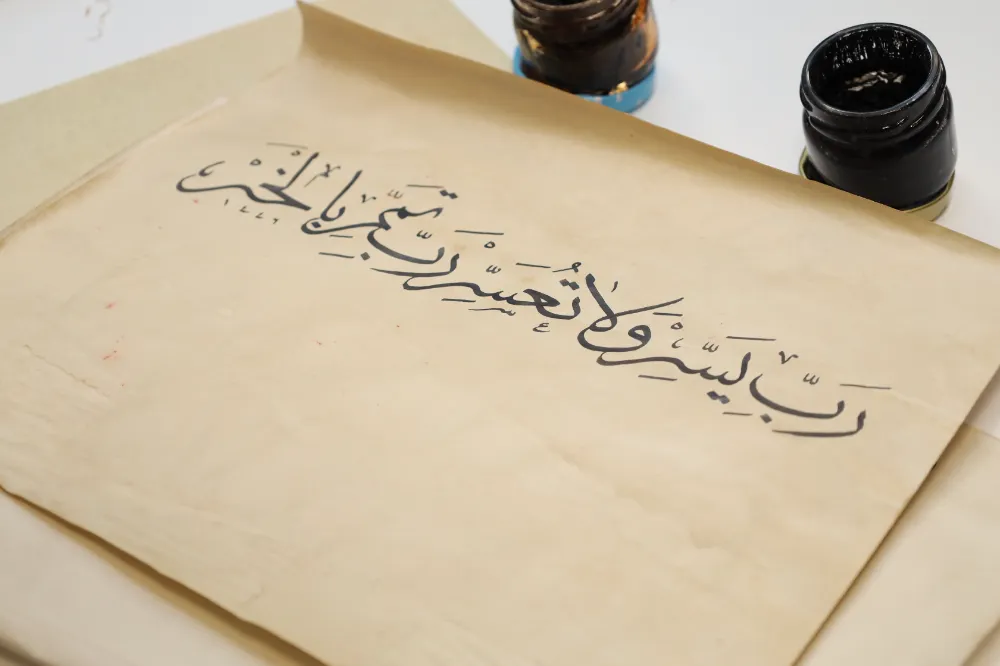 رَبِّ يَسِّرْ وَلَا تُعَسِّرْ رَبِّ تَمِّمْ بِالْخَيْرِ
١٤٤٦